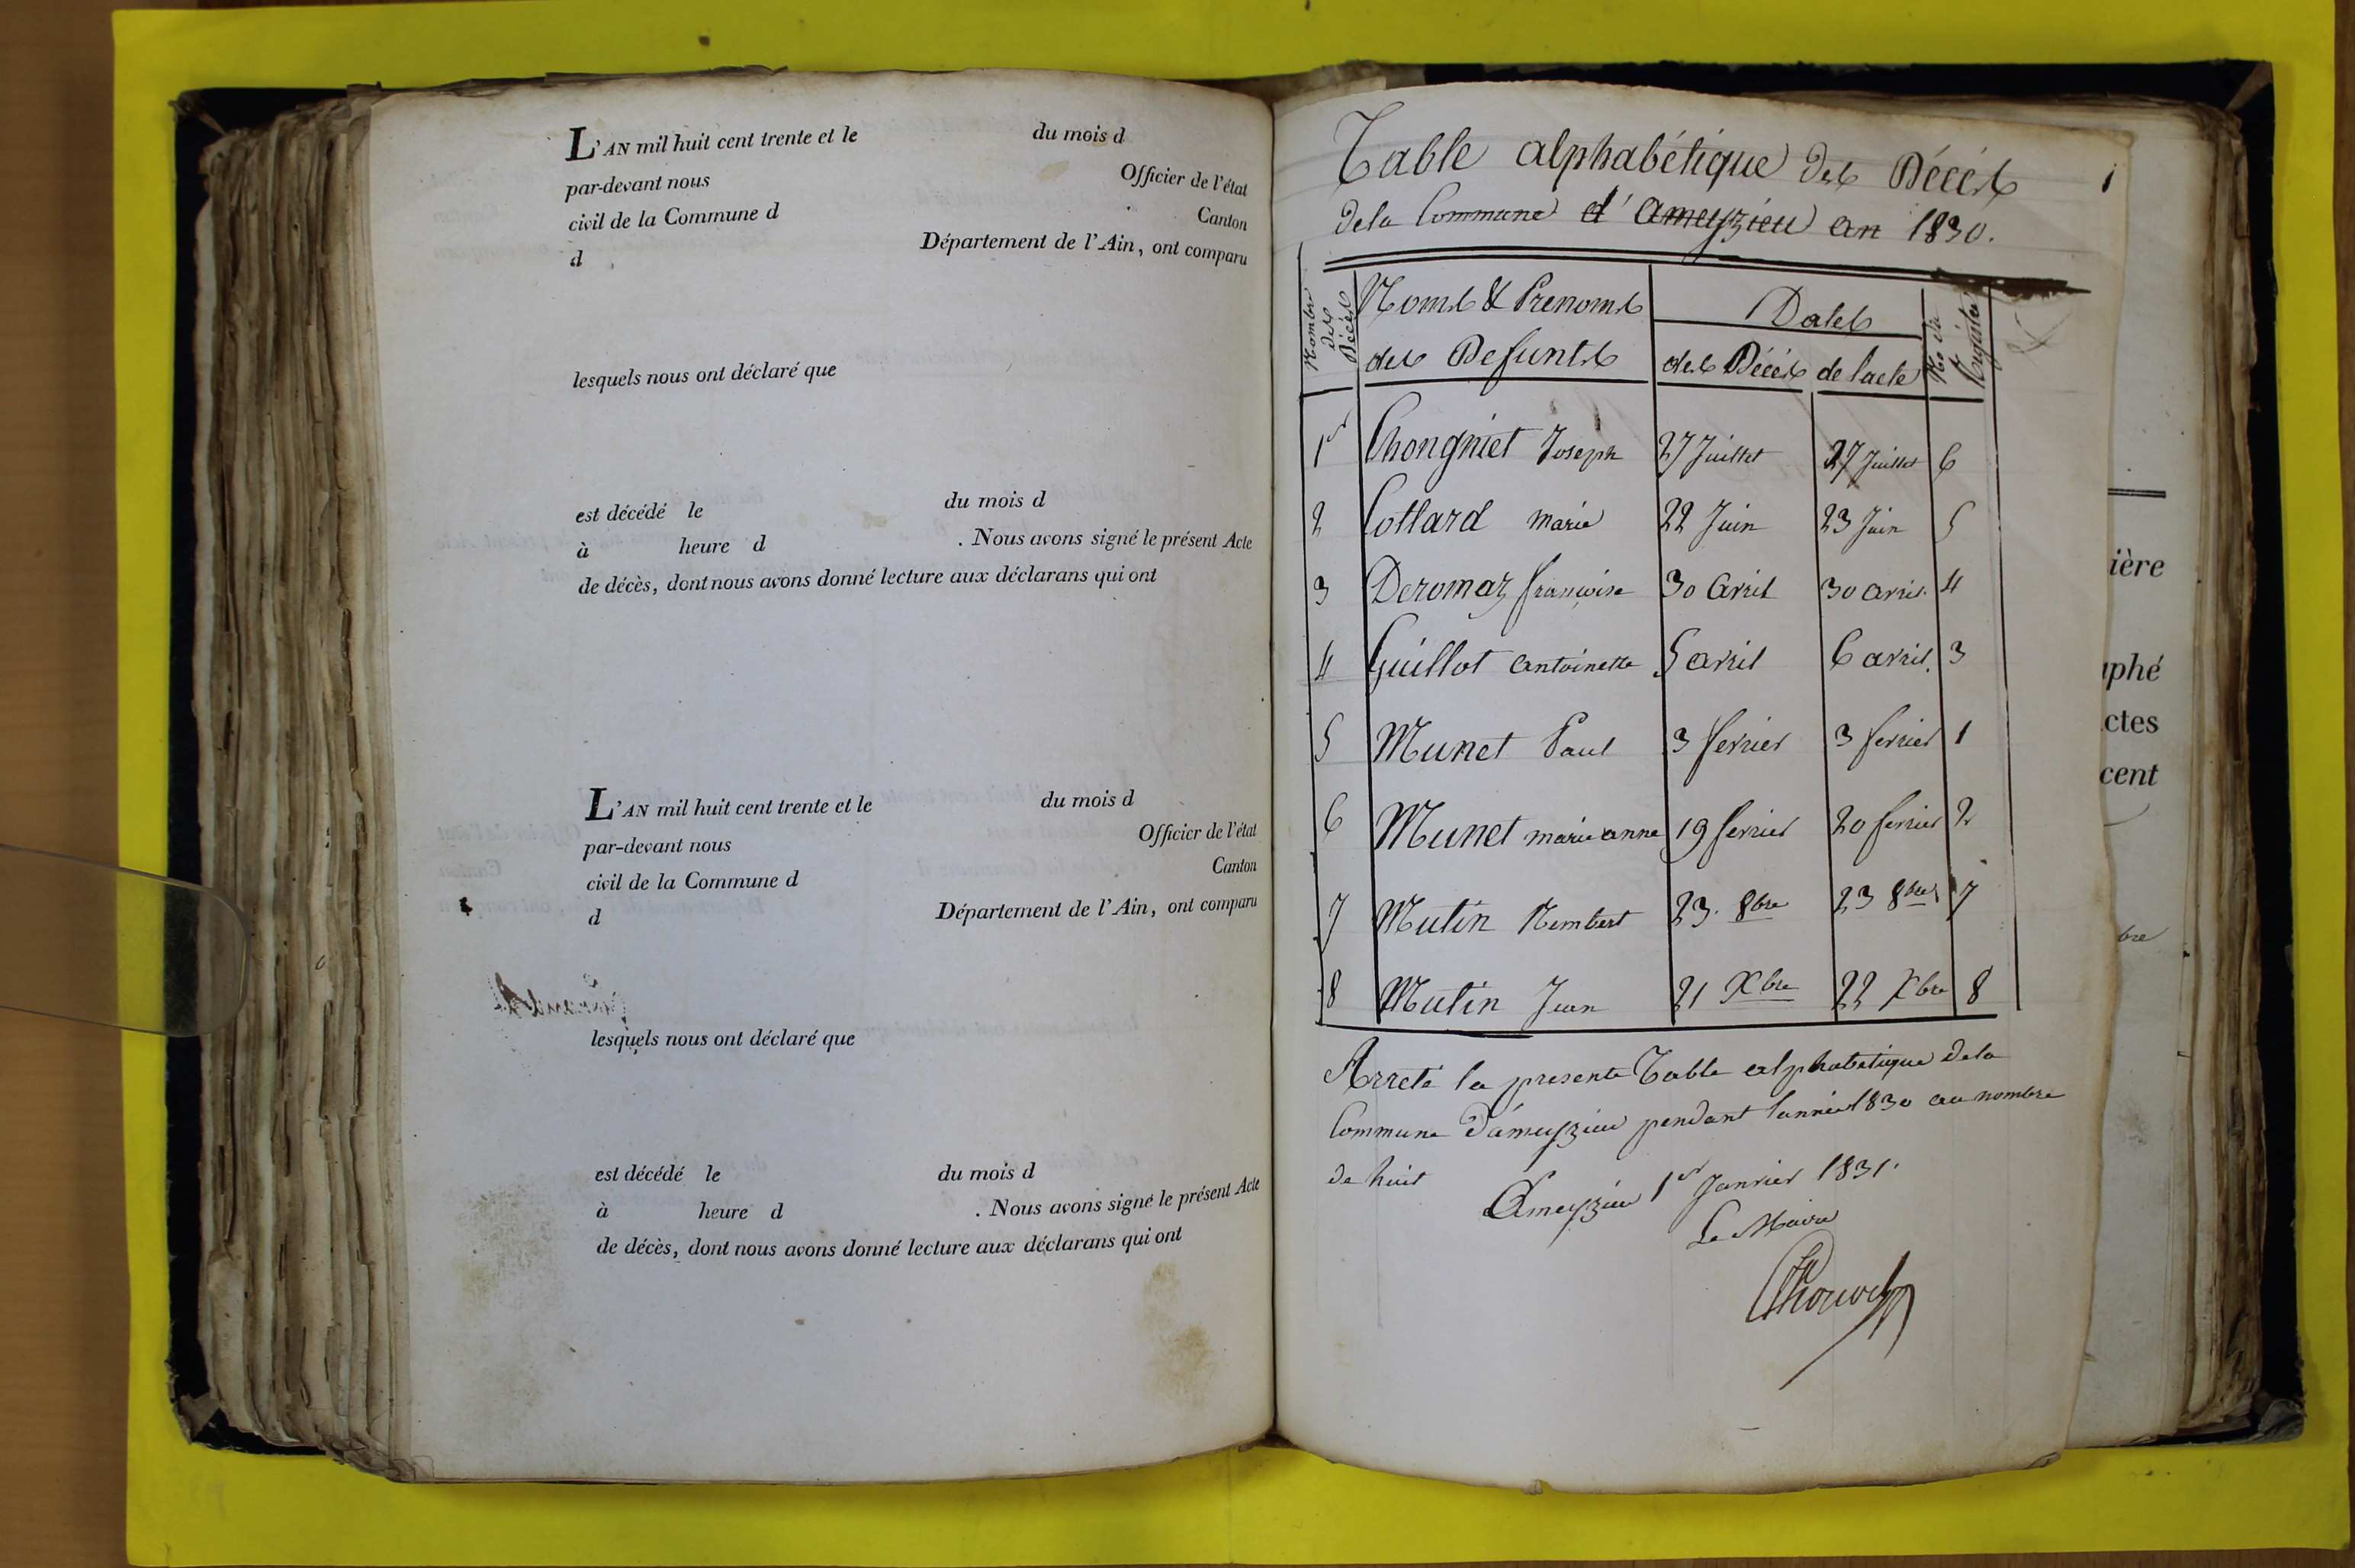 L'AN mil huit cent trente et le du mois d
par-devant nous Officier de l'état
civil de la Commune d Canton
d Département de l'Ain, ont comparu
lesquels nous ont déclaré que
est décédé le du mois d
à heure d . Nous avons signé le présent Acte
de décès, dont nous avons donné lecture aux déclarans qui ont
L'AN mil huit cent trente et le du mois d
par-devant nous Officier de l'état
civil de la Commune d Canton
d Département de l'Ain, ont comparu
lesquels nous ont déclaré que
est décédé le du mois d
à heure d . Nous avons signé le présent Acte
de décès, dont nous avons donné lecture aux déclarans qui ont
Table alphabétique des Décés
dela Commune d'ameyzieu an 1830.
Nombre des Décés
Noms & Prenoms
des Defunts
Dates
des Décés de lacte
No du Registre
1er Chongniet Joseph 27 Juillet 27 Juillet 6
2 Collard marie 22 Juin 23 Juin 5
3 Deromaz françoise 30 avril 30 avril 4
4 Guillot antoinette 5 avril 6 avril 3
5 Munet Paul 3 fevrier 3 fevrier 1
6 Munet marie anne 19 fevrier 20 fevrier 2
7 Mutin Nembert 23. 8bre 23 8bre 7
8 Mutin Jean 21 Xbre 22 Xbre 8
Arreté la presente Table alphabetique dela
Commune d'ameyzieu pendant lannée 1830 au nombre
de huit
Ameyzieu 1er Janvier 1831.
Le Maire
ière
aphé
ctes
cent
bre